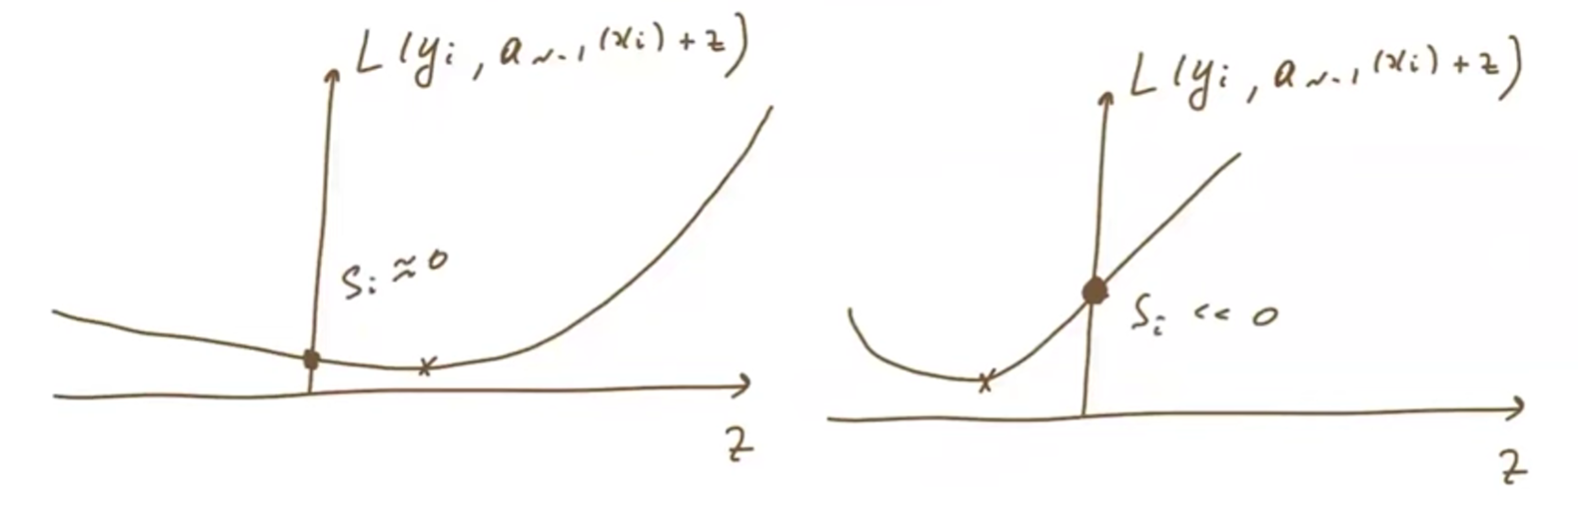 L(yᵢ, a_{N-1}(xᵢ) + z)
sᵢ ≈ 0
z
L(yᵢ, a_{N-1}(xᵢ) + z)
sᵢ << 0
z